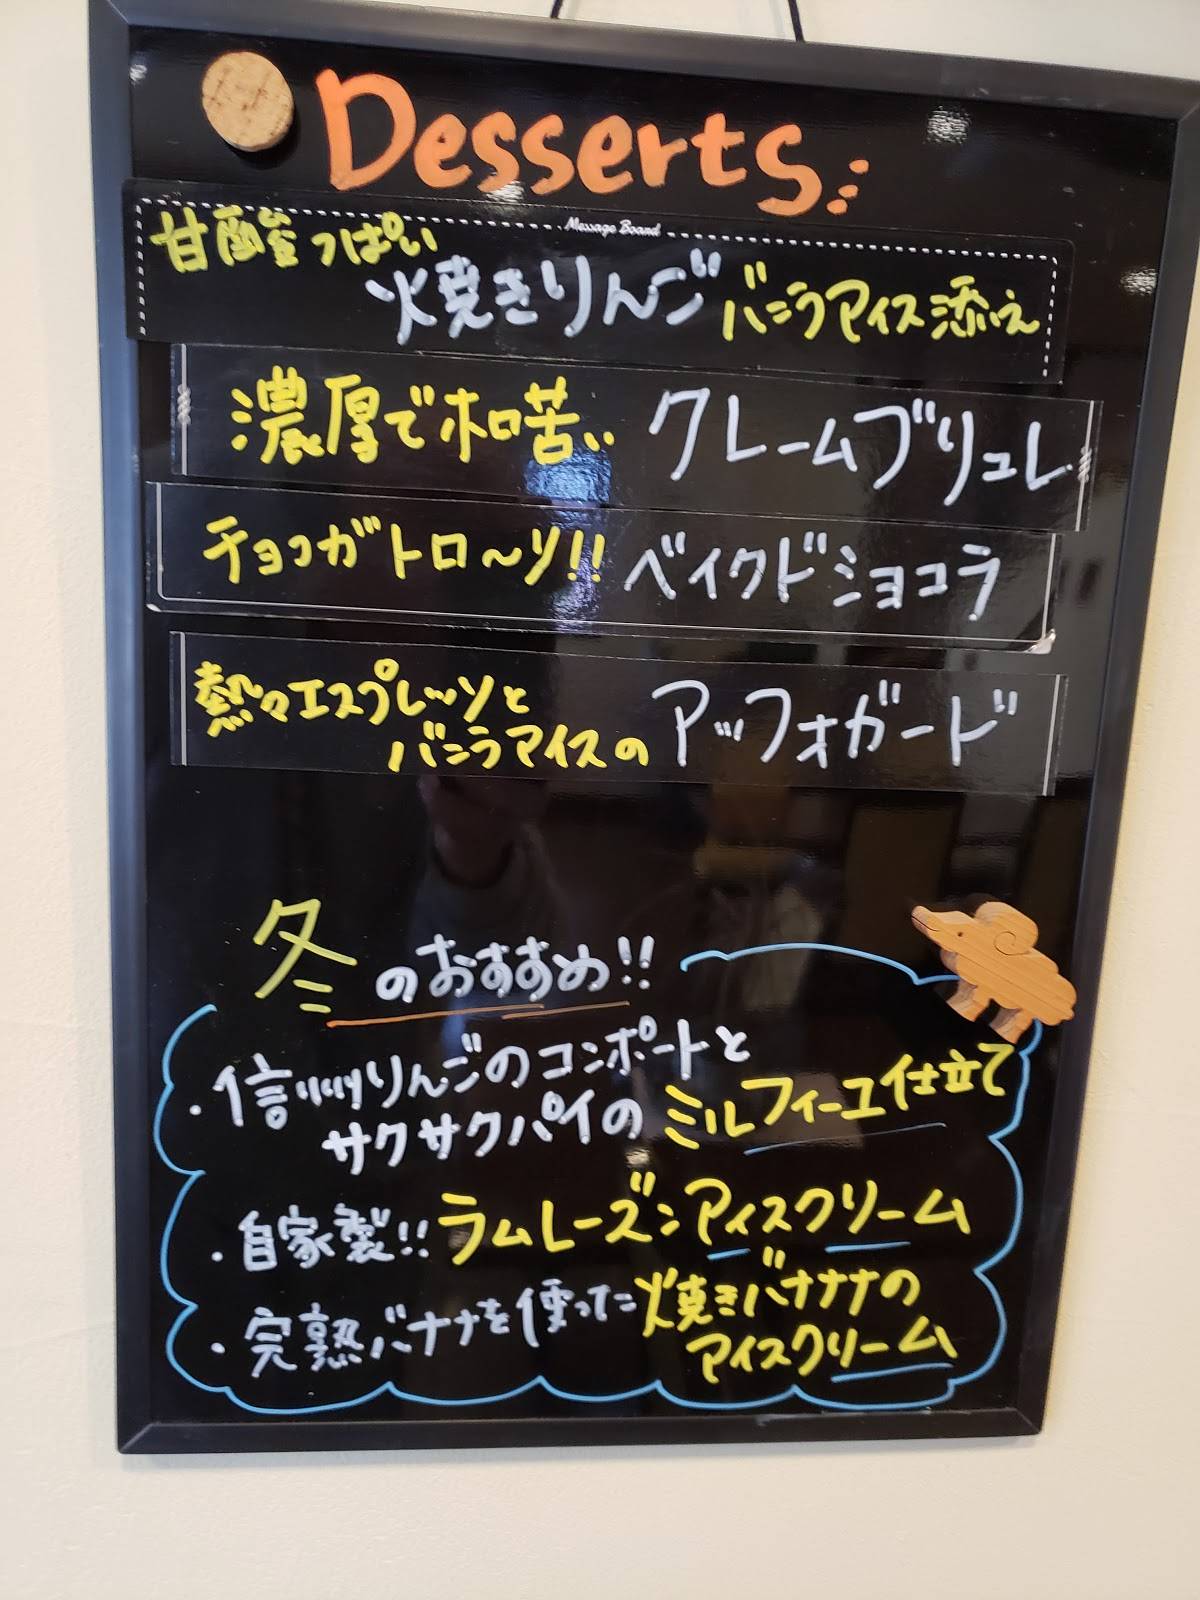 Desserts:
Message Board
甘酸っぱい
焼きりんごバニラアイス添え
濃厚でホロ苦いクレームブリュレ
チョコがトロ〜リ!!ベイクドショコラ
熱々エスプレッソと
バニラアイスのアッフォガード
冬のおすすめ!!
・信州りんごのコンポートと
サクサクパイのミルフィーユ仕立て
・自家製!!ラムレーズンアイスクリーム
・完熟バナナを使った焼きバナナの
アイスクリーム